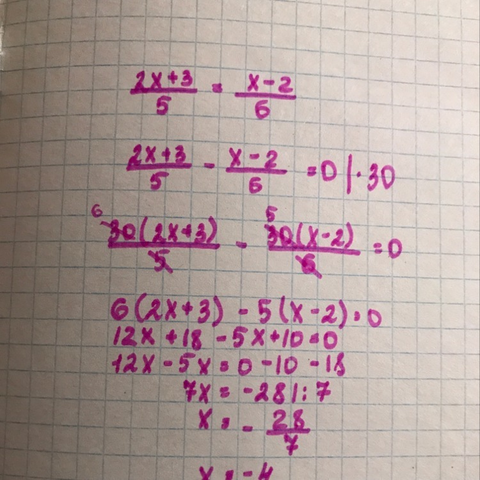 (2x+3)/5 = (x-2)/6
(2x+3)/5 - (x-2)/6 = 0 | · 30
6 30(2x+3)/5 - 5 30(x-2)/6 = 0
6(2x+3) - 5(x-2) = 0
12x + 18 - 5x + 10 = 0
12x - 5x = 0 - 10 - 18
7x = -28 | : 7
x = - 28/7
x = -4